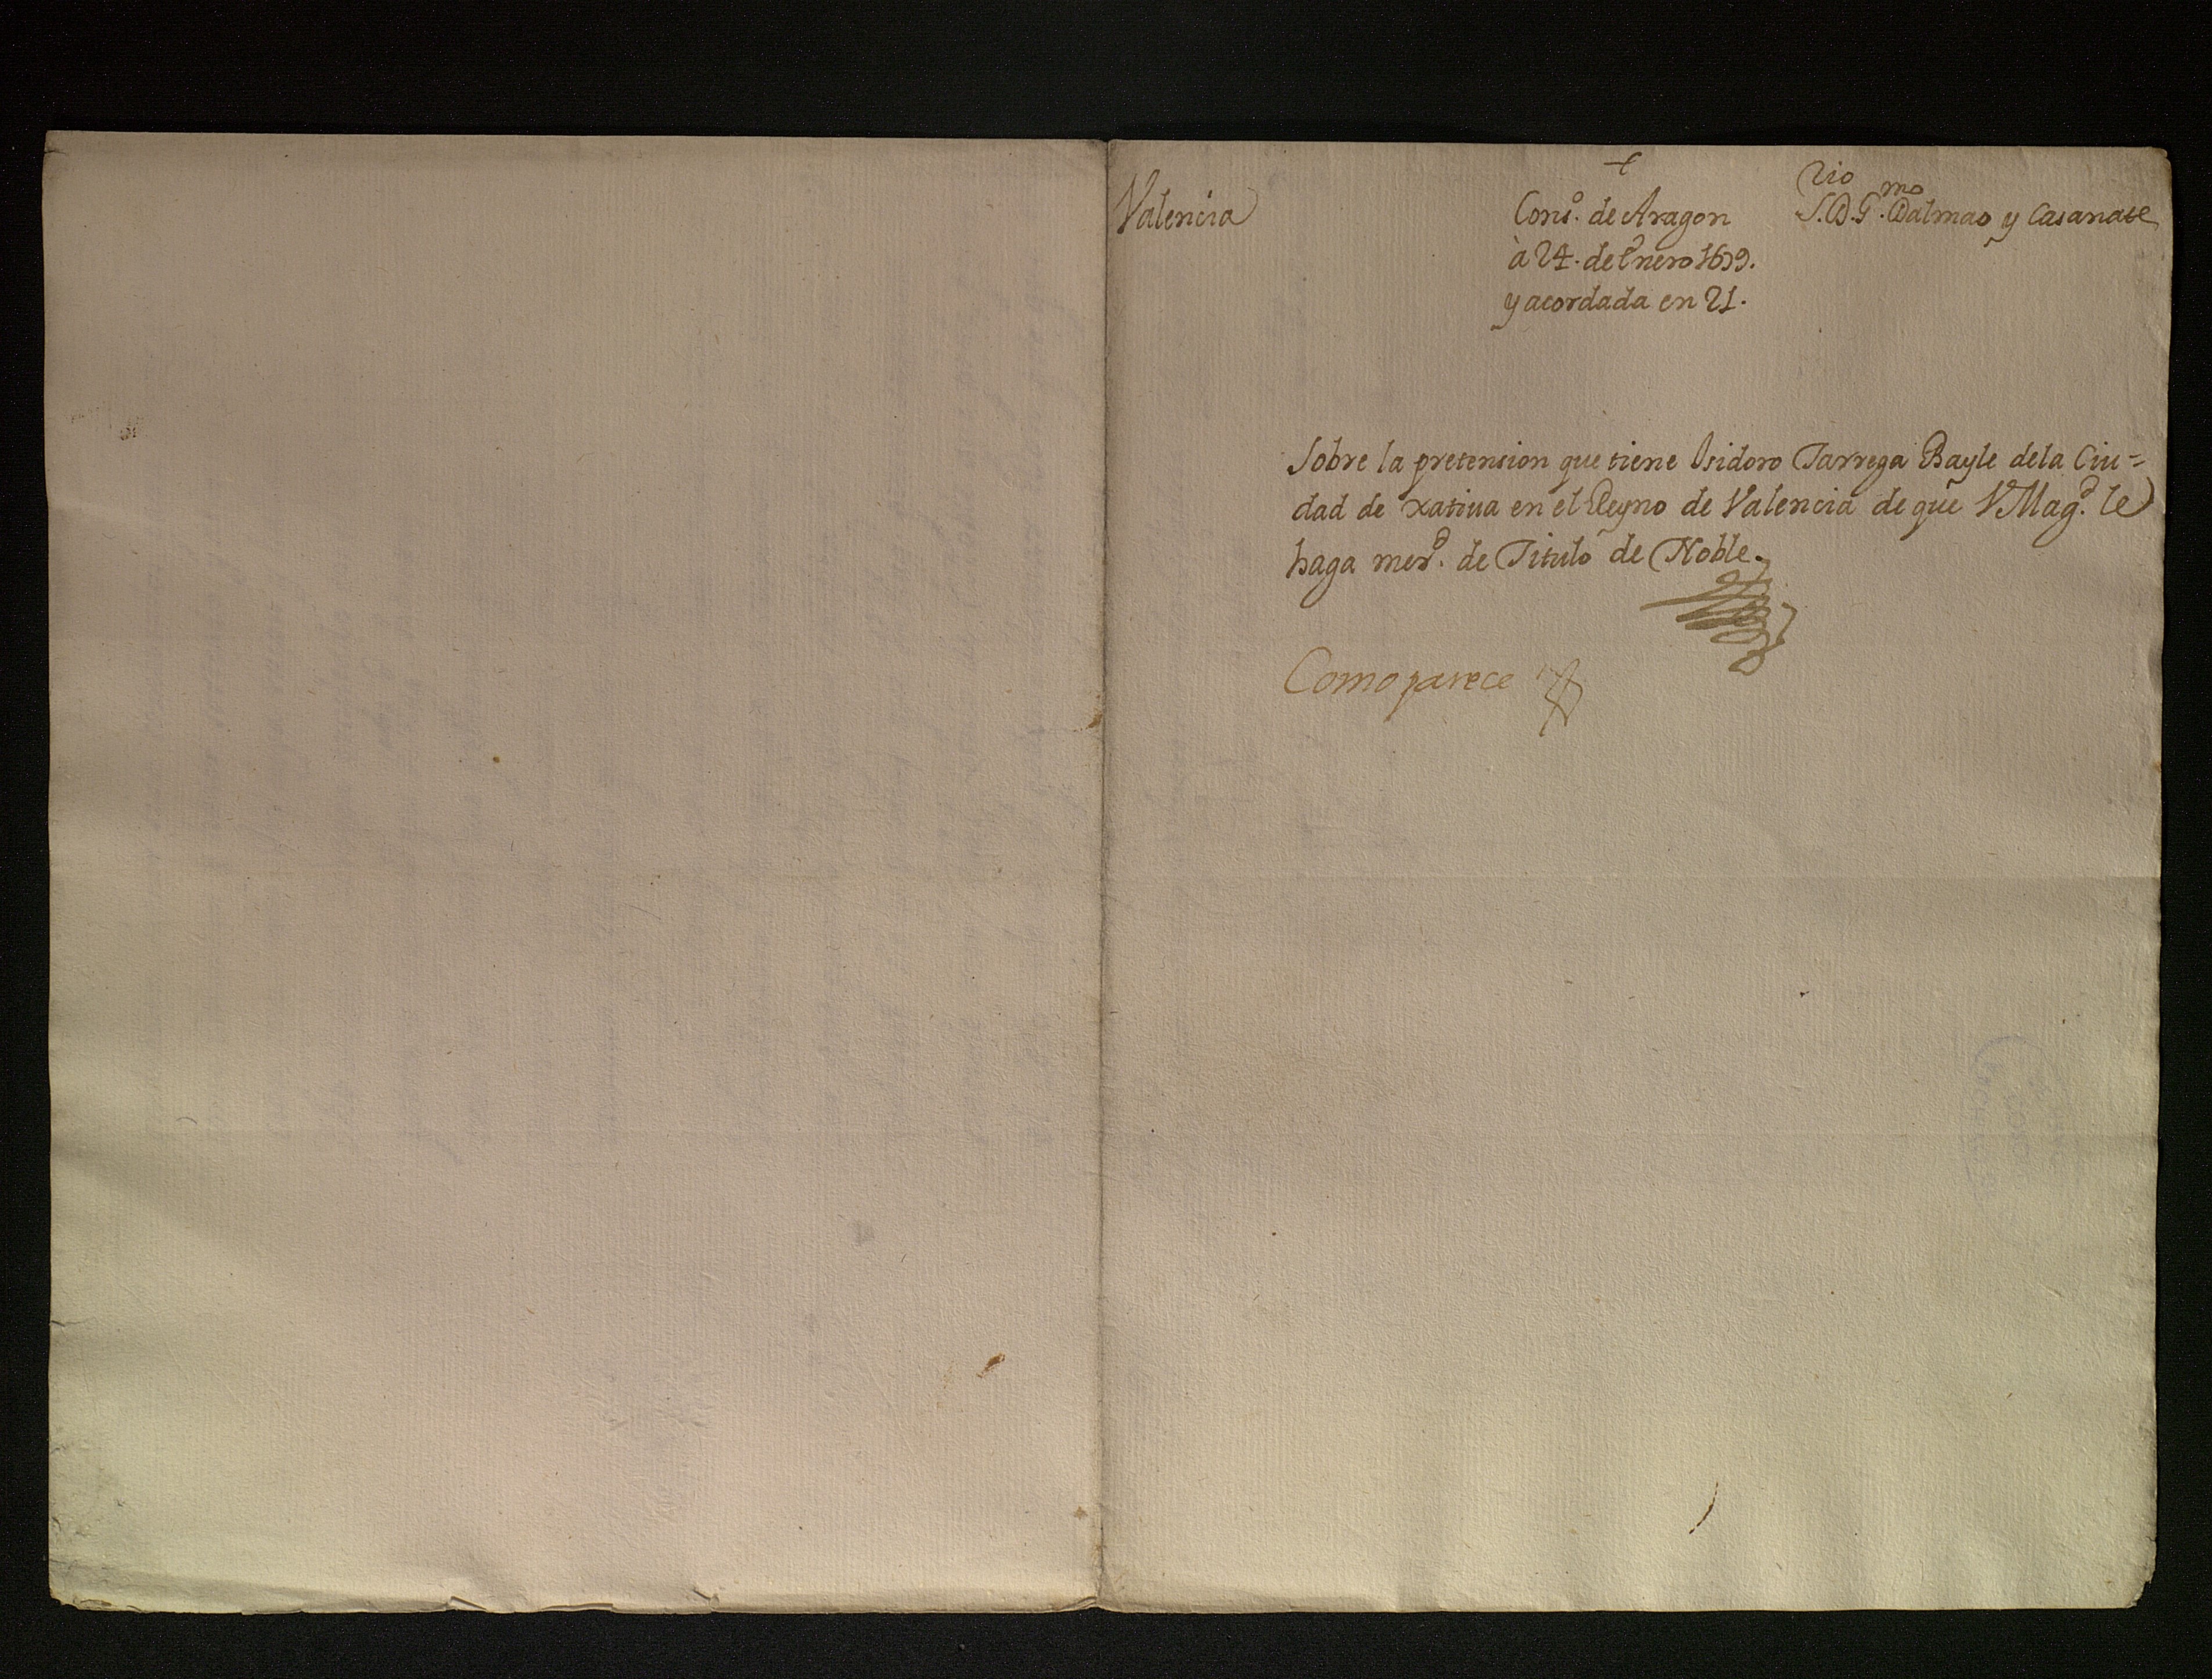 Valencia
Cons.º de Aragon
à 24. de Enero 1699.
y acordada en 21.
S.ʳⁱᵒ D. G.ᵐᵒ Dalmao y Casanate
Sobre la pretension que tiene Isidoro Tarrega Bayle dela Ciu=
dad de xatiua en el Reyno de Valencia de que V Mag.ᵈ le
haga mer.ᵈ de Titulo de Noble.
Como parece